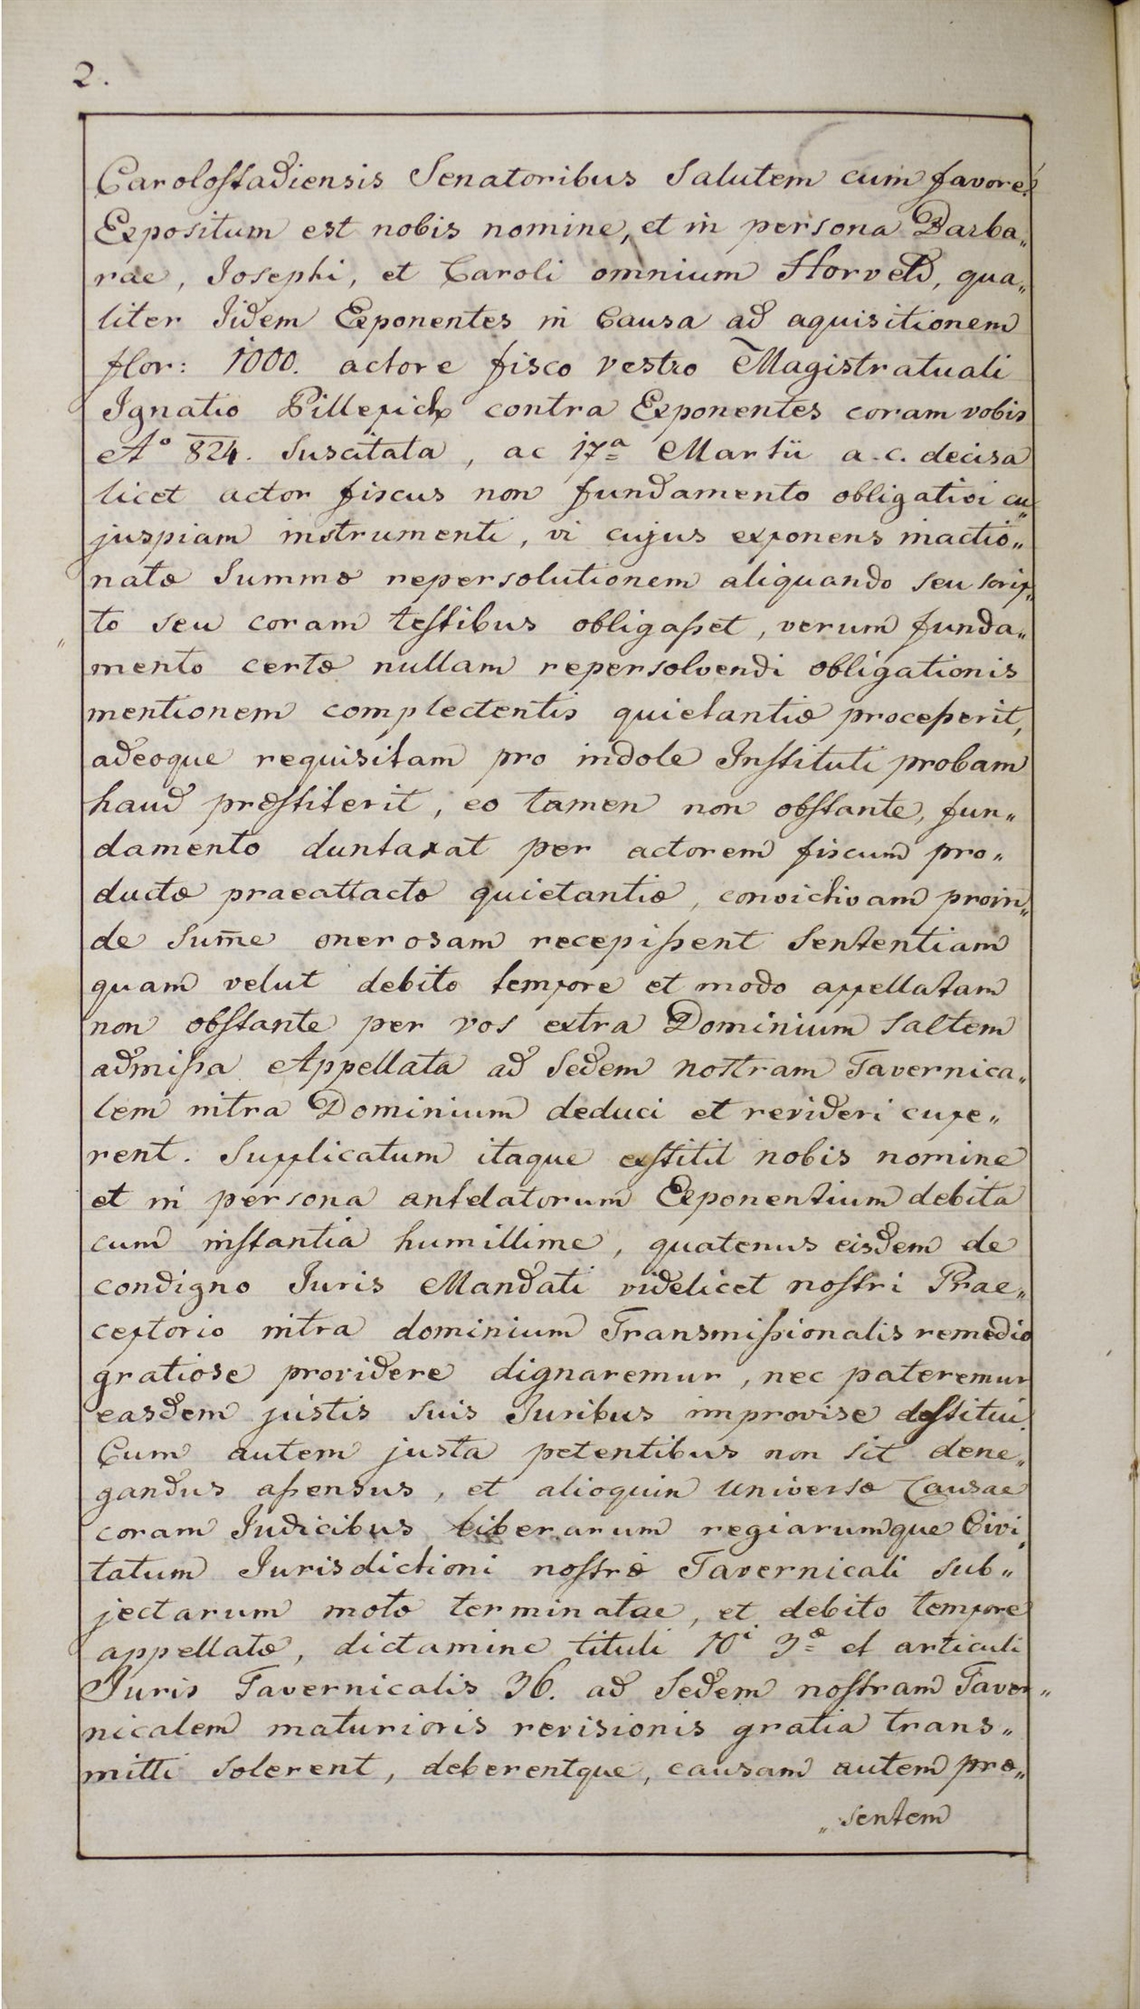 2.
Carolostadiensis Senatoribus Salutem cum favore!
Expositum est nobis nomine, et in persona Barba„
rae, Josephi, et Caroli omnium Horveld, qua„
liter Iidem Exponentes in Causa ad aquisitionem
flor: 1000. actore fisco vestro Magistratuali
Ignatio Pillepich contra Exponentes coram vobis
Aº 824. Suscitata, ac 17ª Martii a.c. decisa
licet actor fiscus non fundamento obligatioi cu„
juspiam instrumenti, vi cujus exponens inactio„
natæ Summæ repersolutionem aliquando seu scrip„
to seu coram testibus obligasset, verum funda„
mento certæ nullam repersolvendi obligationis
mentionem complectentis quietantiæ processerit,
adeoque requisitam pro indole Instituti probam
haud præstiterit, eo tamen non obstante, fun„
damento duntaxat per actorem fiscum pro„
ductæ praeattactæ quietantiæ, convictivam proin„
de sum̄e onerosam recepissent Sententiam
quam velut debito tempore et modo appellatam
non obstante per vos extra Dominium saltem
admissa Appellata ad Sedem nostram Tavernica„
lem intra Dominium deduci et revideri cupe„
rent. Supplicatum itaque exstitit nobis nomine
et in persona antelatorum Exponentium debita
cum instantia humillime, quatenus eisdem de
condigno Juris Mandati videlicet nostri Prae„
ceptorio intra dominium Transmissionalis remedio
gratiose providere dignaremur, nec pateremur
easdem justis suis Juribus improvise destitui.
Cum autem justa petentibus non sit dene„
gandus assensus, et alioquin universæ Causae
coram Judicibus liberarum regiarumque Civi„
tatum Jurisdictioni nostræ Tavernicali sub„
jectarum motæ terminatae, et debito tempore
appellatæ, dictamine tituli 10i 3æ et articuli
Juris Tavernicalis 36. ad Sedem nostram Taver„
nicalem maturioris revisionis gratia trans„
mitti solerent, deberentque, causam autem præ„
„sentem